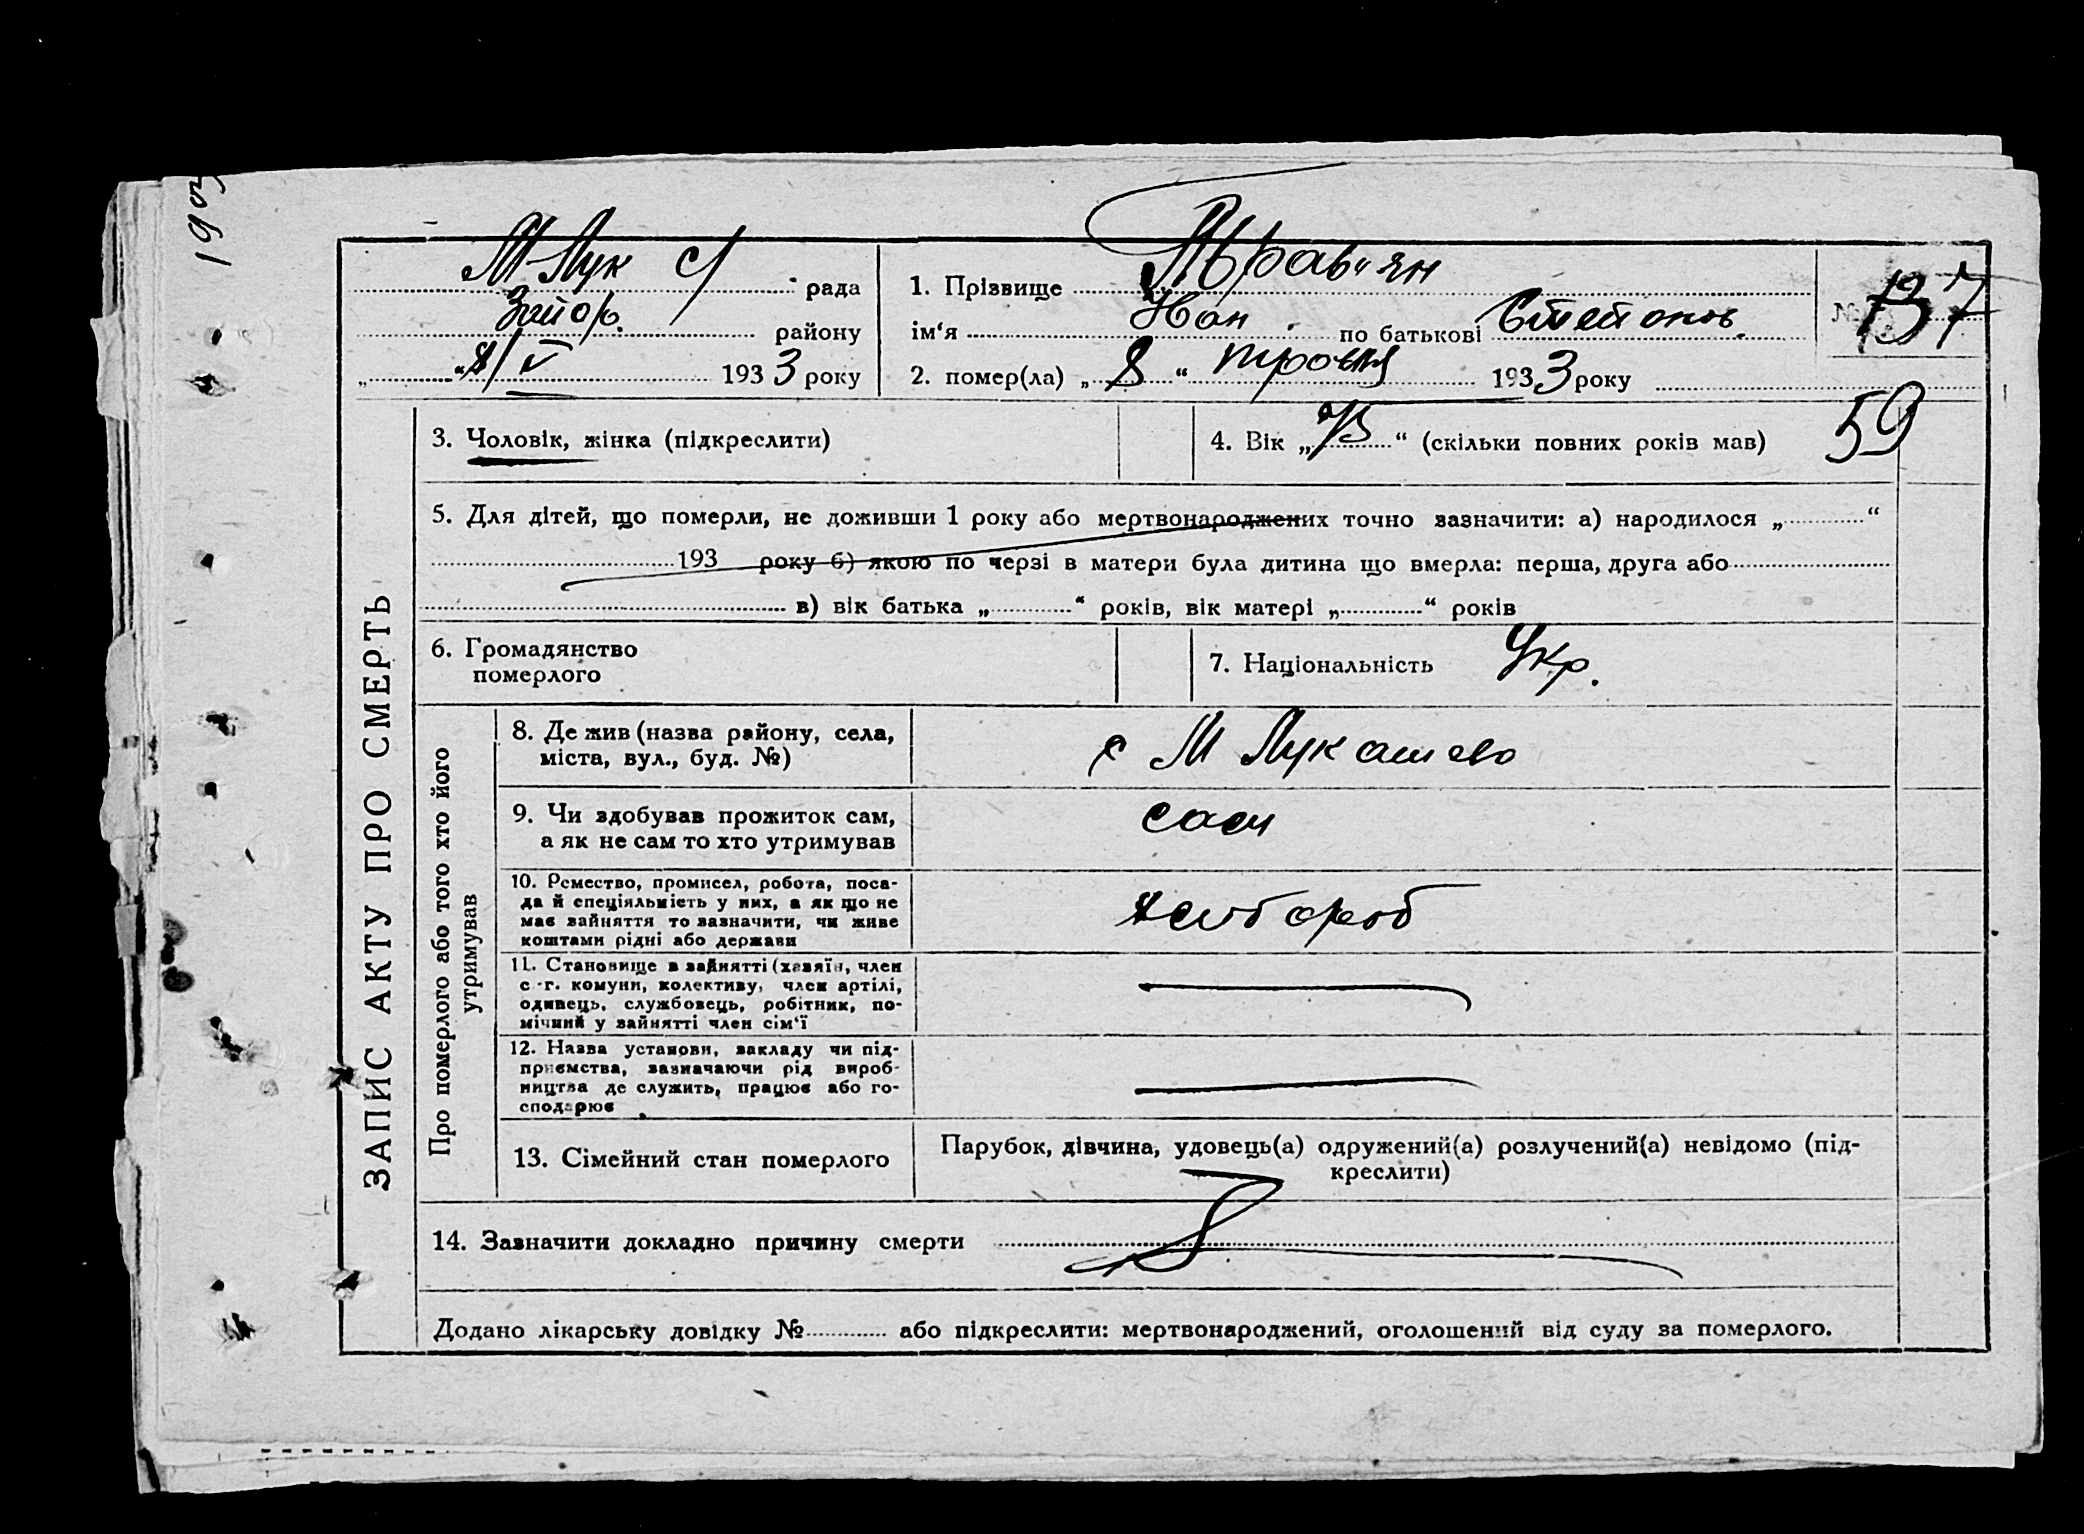 М-Лук с/ рада
Запор. району
„ 8/V 1933 року
1. Прізвище Трав'ян
ім‘я Иван по батькові Степанов.
№ 137
2. помер(ла) „ 8 “ травня 1933 року
59
3. Чоловік, жінка (підкреслити)
4. Вік „ 73 “ (скільки повних років мав)
5. Для дітей, що померли, не доживши 1 року або мертвонароджених точно зазначити: а) народилося „ “
193 року б) якою по черзі в матери була дитина що вмерла: перша, друга або
в) вік батька „ “ років, вік матері „ “ років
6. Громадянство
померлого
7. Національність Укр.
ЗАПИС АКТУ ПРО СМЕРТЬ
Про померлого або того хто його
утримував
8. Де жив (назва району, села,
міста, вул., буд. №)
с М Лукашево
9. Чи здобував прожиток сам,
а як не сам то хто утримував
сам
10. Ремество, промисел, робота, поса-
да й спеціяльність у них, а як що не
має зайняття то зазначити, чи живе
коштами рідні або держави
хлібороб
11. Становище в зайнятті (хазяїн, член
с.-г. комуни, колективу, член артілі,
одивець, службовець, робітник, по-
мічний у зайнятті член сім‘ї
12. Назва установи, закладу чи під-
приємства, зазначаючи рід вироб-
ництва де служить, працює або го-
сподарює
13. Сімейний стан померлого
Парубок, дівчина, удовець(а) одружений(а) розлучений(а) невідомо (під-
креслити)
14. Зазначити докладно причину смерти
Додано лікарську довідку № або підкреслити: мертвонароджений, оголошений від суду за померлого.